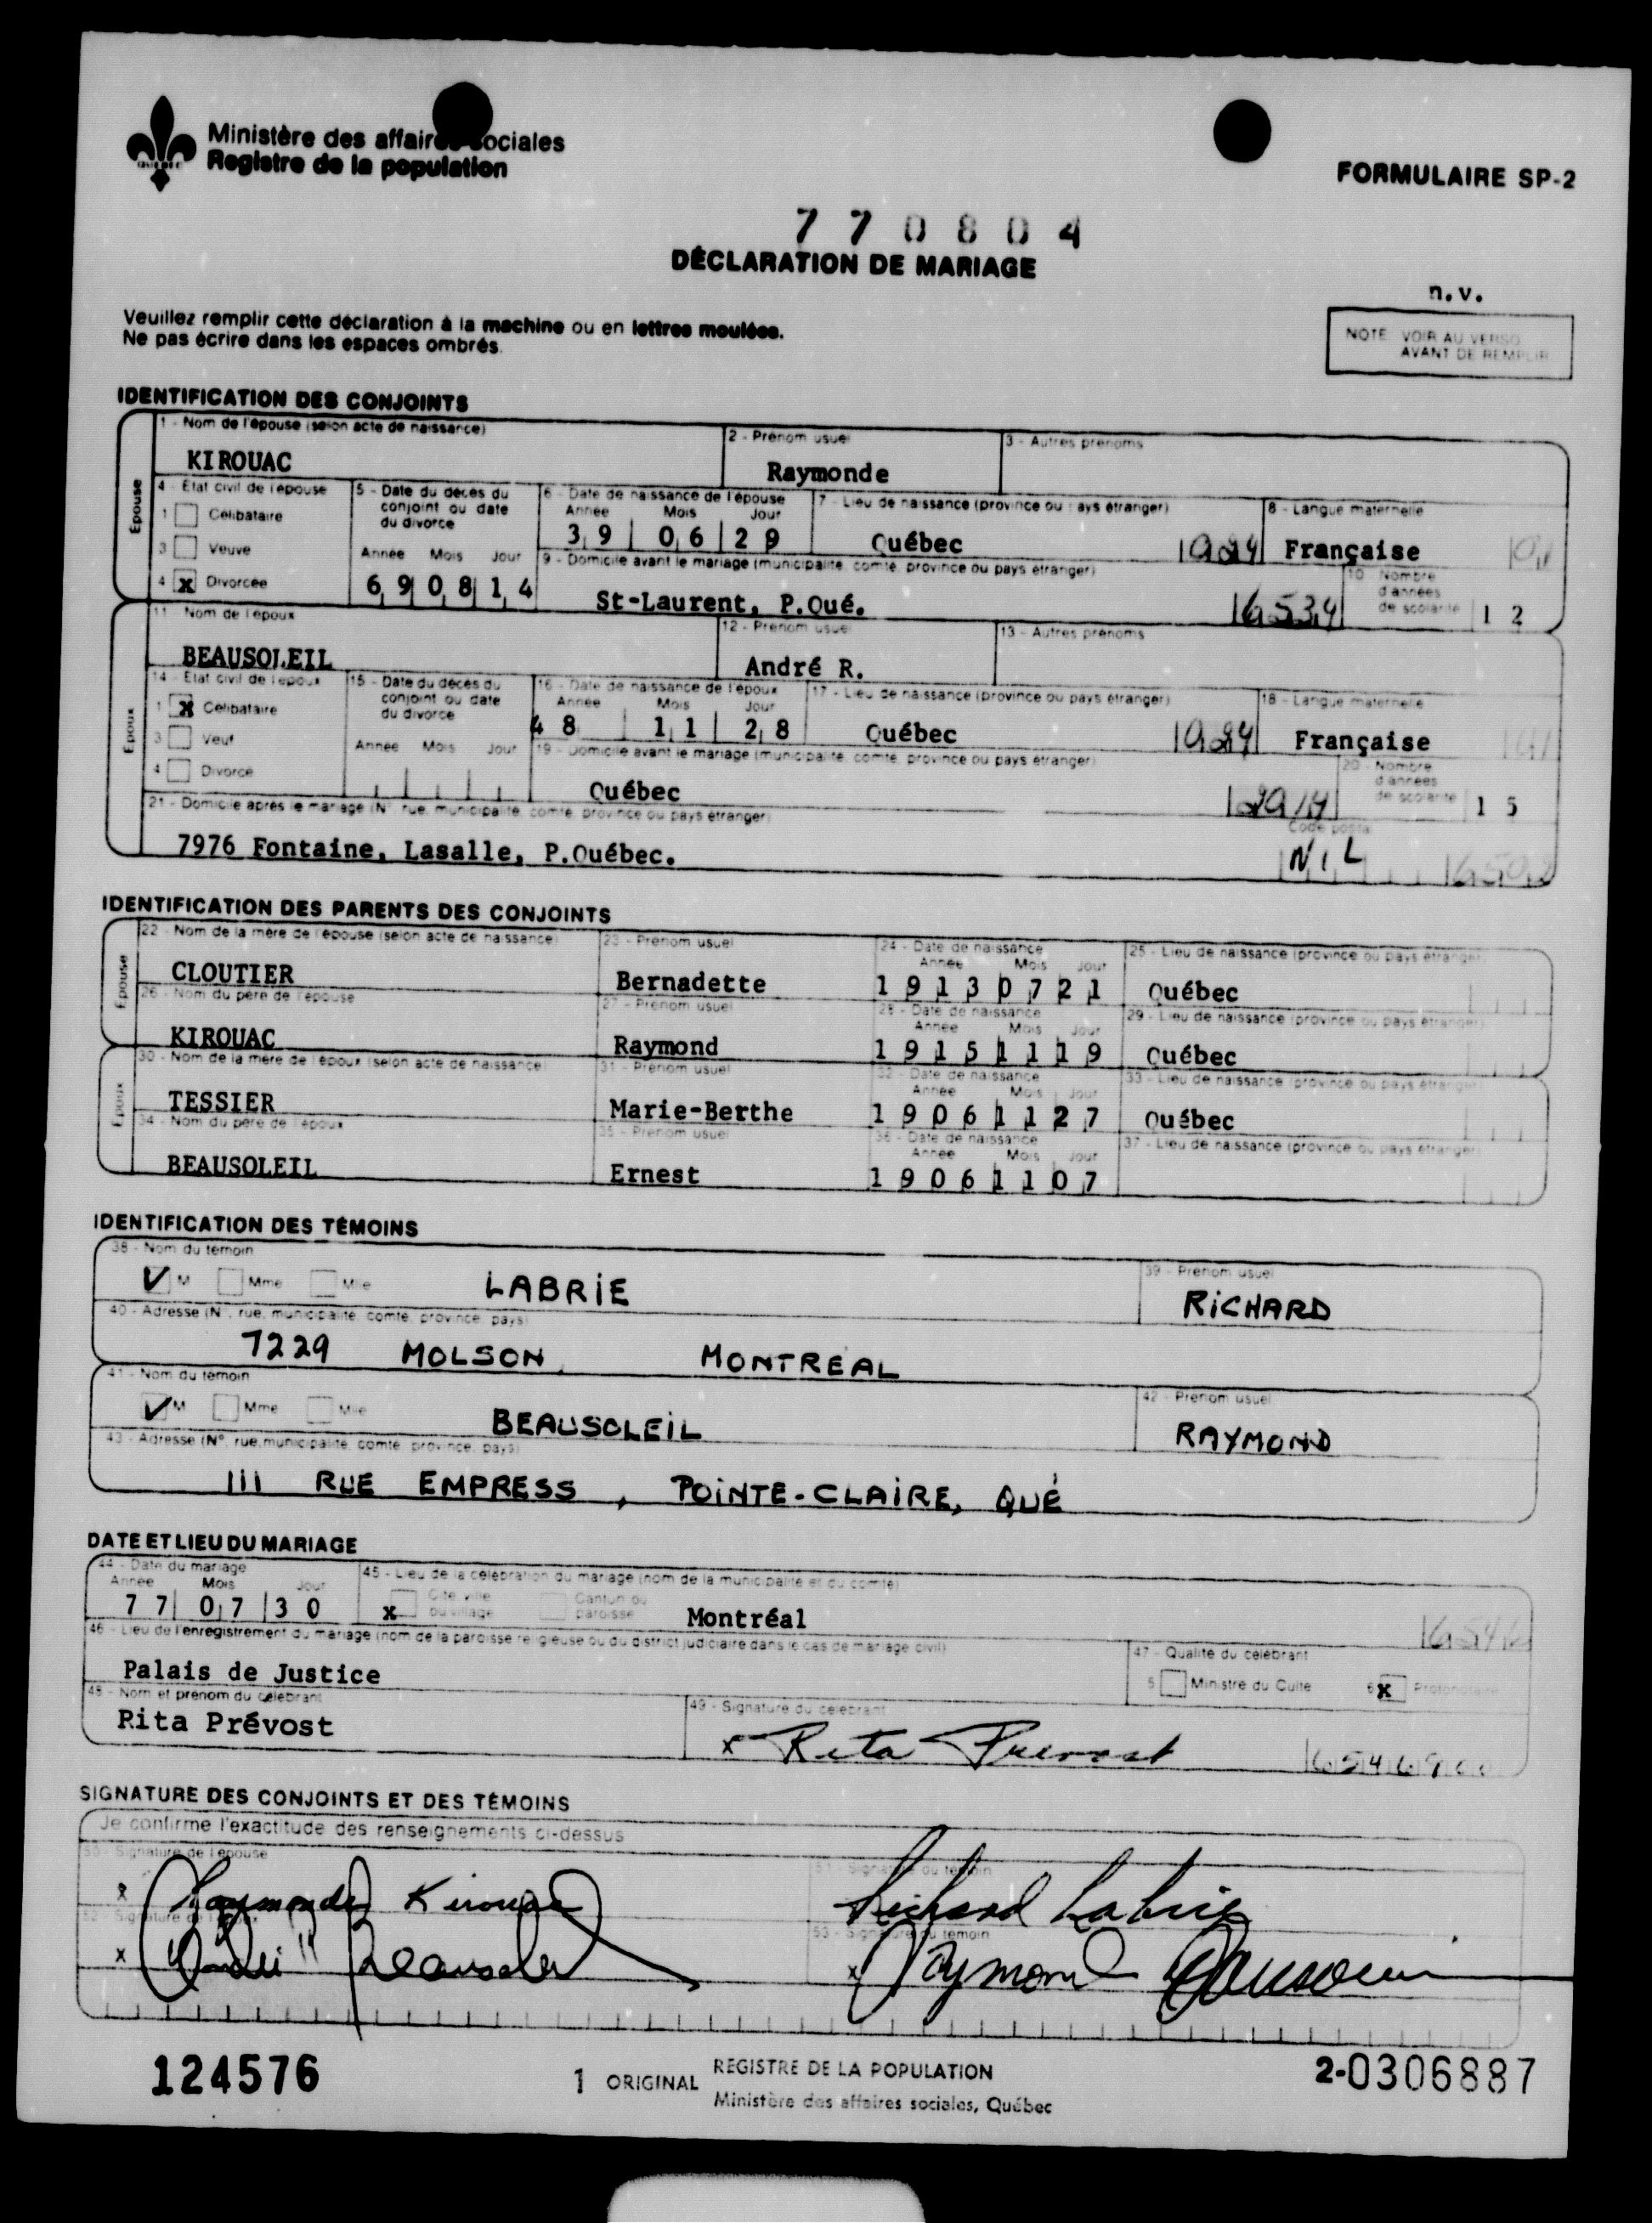 Ministère des affaires sociales
Registre de la population
FORMULAIRE SP-2
770804
DÉCLARATION DE MARIAGE
n.v.
Veuillez remplir cette déclaration à la machine ou en lettres moulées.
Ne pas écrire dans les espaces ombrés.
NOTE VOIR AU VERSO
AVANT DE REMPLIR
IDENTIFICATION DES CONJOINTS
Épouse
1 - Nom de l'épouse (selon acte de naissance) 2 - Prénom usuel 3 - Autres prénoms
KIROUAC Raymonde
4 - État civil de l'épouse 5 - Date du décès du conjoint ou date du divorce 6 - Date de naissance de l'épouse 7 - Lieu de naissance (province ou pays étranger) 8 - Langue maternelle
1 Célibataire Année Mois Jour
39 06 29 Québec Française
3 Veuve Année Mois Jour 9 - Domicile avant le mariage (municipalité, comté, province ou pays étranger) 10 - Nombre d'années de scolarité
4 x Divorcée 69 08 14 St-Laurent, P.Qué. 16534 12
Époux
11 - Nom de l'époux 12 - Prénom usuel 13 - Autres prénoms
BEAUSOLEIL André R.
14 - État civil de l'époux 15 - Date du décès du conjoint ou date du divorce 16 - Date de naissance de l'époux 17 - Lieu de naissance (province ou pays étranger) 18 - Langue maternelle
1 x Célibataire Année Mois Jour
48 11 28 Québec Française
3 Veuf Année Mois Jour 19 - Domicile avant le mariage (municipalité, comté, province ou pays étranger) 20 - Nombre d'années de scolarité
4 Divorcé Québec 15
21 - Domicile après le mariage (N°, rue, municipalité, comté, province ou pays étranger) Code postal
7976 Fontaine, Lasalle, P.Québec. NIL
IDENTIFICATION DES PARENTS DES CONJOINTS
Épouse
22 - Nom de la mère de l'épouse (selon acte de naissance) 23 - Prénom usuel 24 - Date de naissance 25 - Lieu de naissance (province ou pays étranger)
Année Mois Jour
CLOUTIER Bernadette 1913 07 21 Québec
26 - Nom du père de l'épouse 27 - Prénom usuel 28 - Date de naissance 29 - Lieu de naissance (province ou pays étranger)
Année Mois Jour
KIROUAC Raymond 1915 11 19 Québec
Époux
30 - Nom de la mère de l'époux (selon acte de naissance) 31 - Prénom usuel 32 - Date de naissance 33 - Lieu de naissance (province ou pays étranger)
Année Mois Jour
TESSIER Marie-Berthe 1906 11 27 Québec
34 - Nom du père de l'époux 35 - Prénom usuel 36 - Date de naissance 37 - Lieu de naissance (province ou pays étranger)
Année Mois Jour
BEAUSOLEIL Ernest 1906 11 07
IDENTIFICATION DES TÉMOINS
38 - Nom du témoin 39 - Prénom usuel
M Mme Mlle LABRIE RICHARD
40 - Adresse (N°, rue, municipalité, comté, province, pays)
7229 MOLSON, MONTREAL
41 - Nom du témoin 42 - Prénom usuel
M Mme Mlle BEAUSOLEIL RAYMOND
43 - Adresse (N°, rue, municipalité, comté, province, pays)
111 RUE EMPRESS, POINTE-CLAIRE, QUÉ
DATE ET LIEU DU MARIAGE
44 - Date du mariage 45 - Lieu de la célébration du mariage (nom de la municipalité et du comté)
Année Mois Jour
77 07 30 x Cité ville ou village Canton ou paroisse Montréal
46 - Lieu de l'enregistrement du mariage (nom de la paroisse religieuse ou du district judiciaire dans le cas de mariage civil) 47 - Qualité du célébrant
Palais de Justice 5 Ministre du Culte 6 x Protonotaire
48 - Nom et prénom du célébrant 49 - Signature du célébrant
Rita Prévost x Rita Prevost
SIGNATURE DES CONJOINTS ET DES TÉMOINS
Je confirme l'exactitude des renseignements ci-dessus
50 - Signature de l'épouse 51 - Signature du témoin
x Raymonde Kirouac Richard Labrie
52 - Signature de l'époux 53 - Signature du témoin
x "André" Beausoleil x Raymond Beausoleil
124576 1 ORIGINAL REGISTRE DE LA POPULATION 2-0306887
Ministère des affaires sociales, Québec